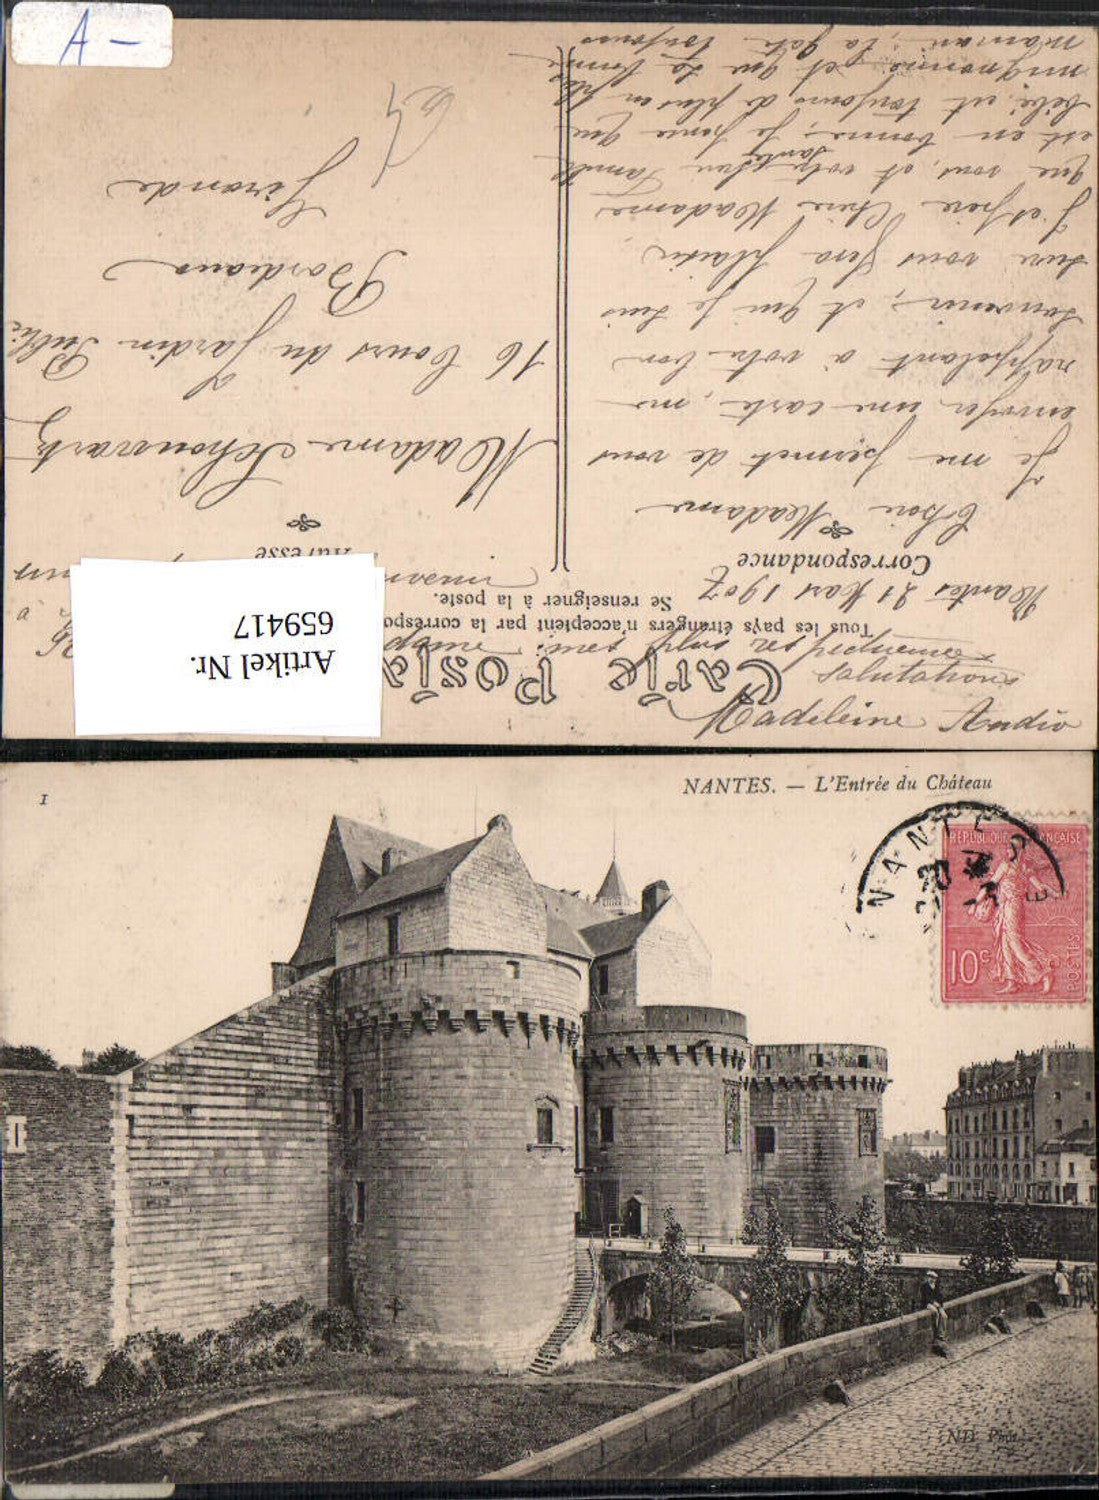 A -
Carte Posta
Tous les pays étrangers n'acceptent par la correspo
Se renseigner à la poste.
Correspondance
Adresse
Artikel Nr.
659417
Nantes 21 Mars 1907
Chère Madame
Je me permet de vous
envoyer une carte, me
rappelant à votre bon
souvenir, et qui je suis
sure vous fera plaisir.
J'espère Chère Madame
que vous, et votre famille
santé
est en bonne, je pense que
bébé, est toujours de plus en plus
mignonne, et que sa bonne
maman, la gâte toujours
mes plus respectueuses
salutations
Madeleine
Madame Schouwartz
16 Cours du Jardin Public
Bordeaux
Gironde
1
NANTES. — L'Entrée du Château
NANTES
REPUBLIQUE FRANÇAISE
10c
POSTES
ND Phot.